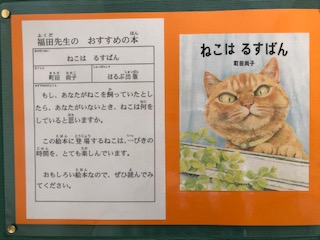 福田先生の おすすめの本
ねこは るすばん
町田 尚子
ほるぷ出版
もし、あなたがねこを飼っていたとし
たら、あなたがいないとき、ねこは何を
していると思いますか。
この絵本に登場するねこは、一ぴきの
時間を、とても楽しんでいます。
おもしろい絵本なので、ぜひ読んでみ
てください。
ねこは るすばん
町田尚子